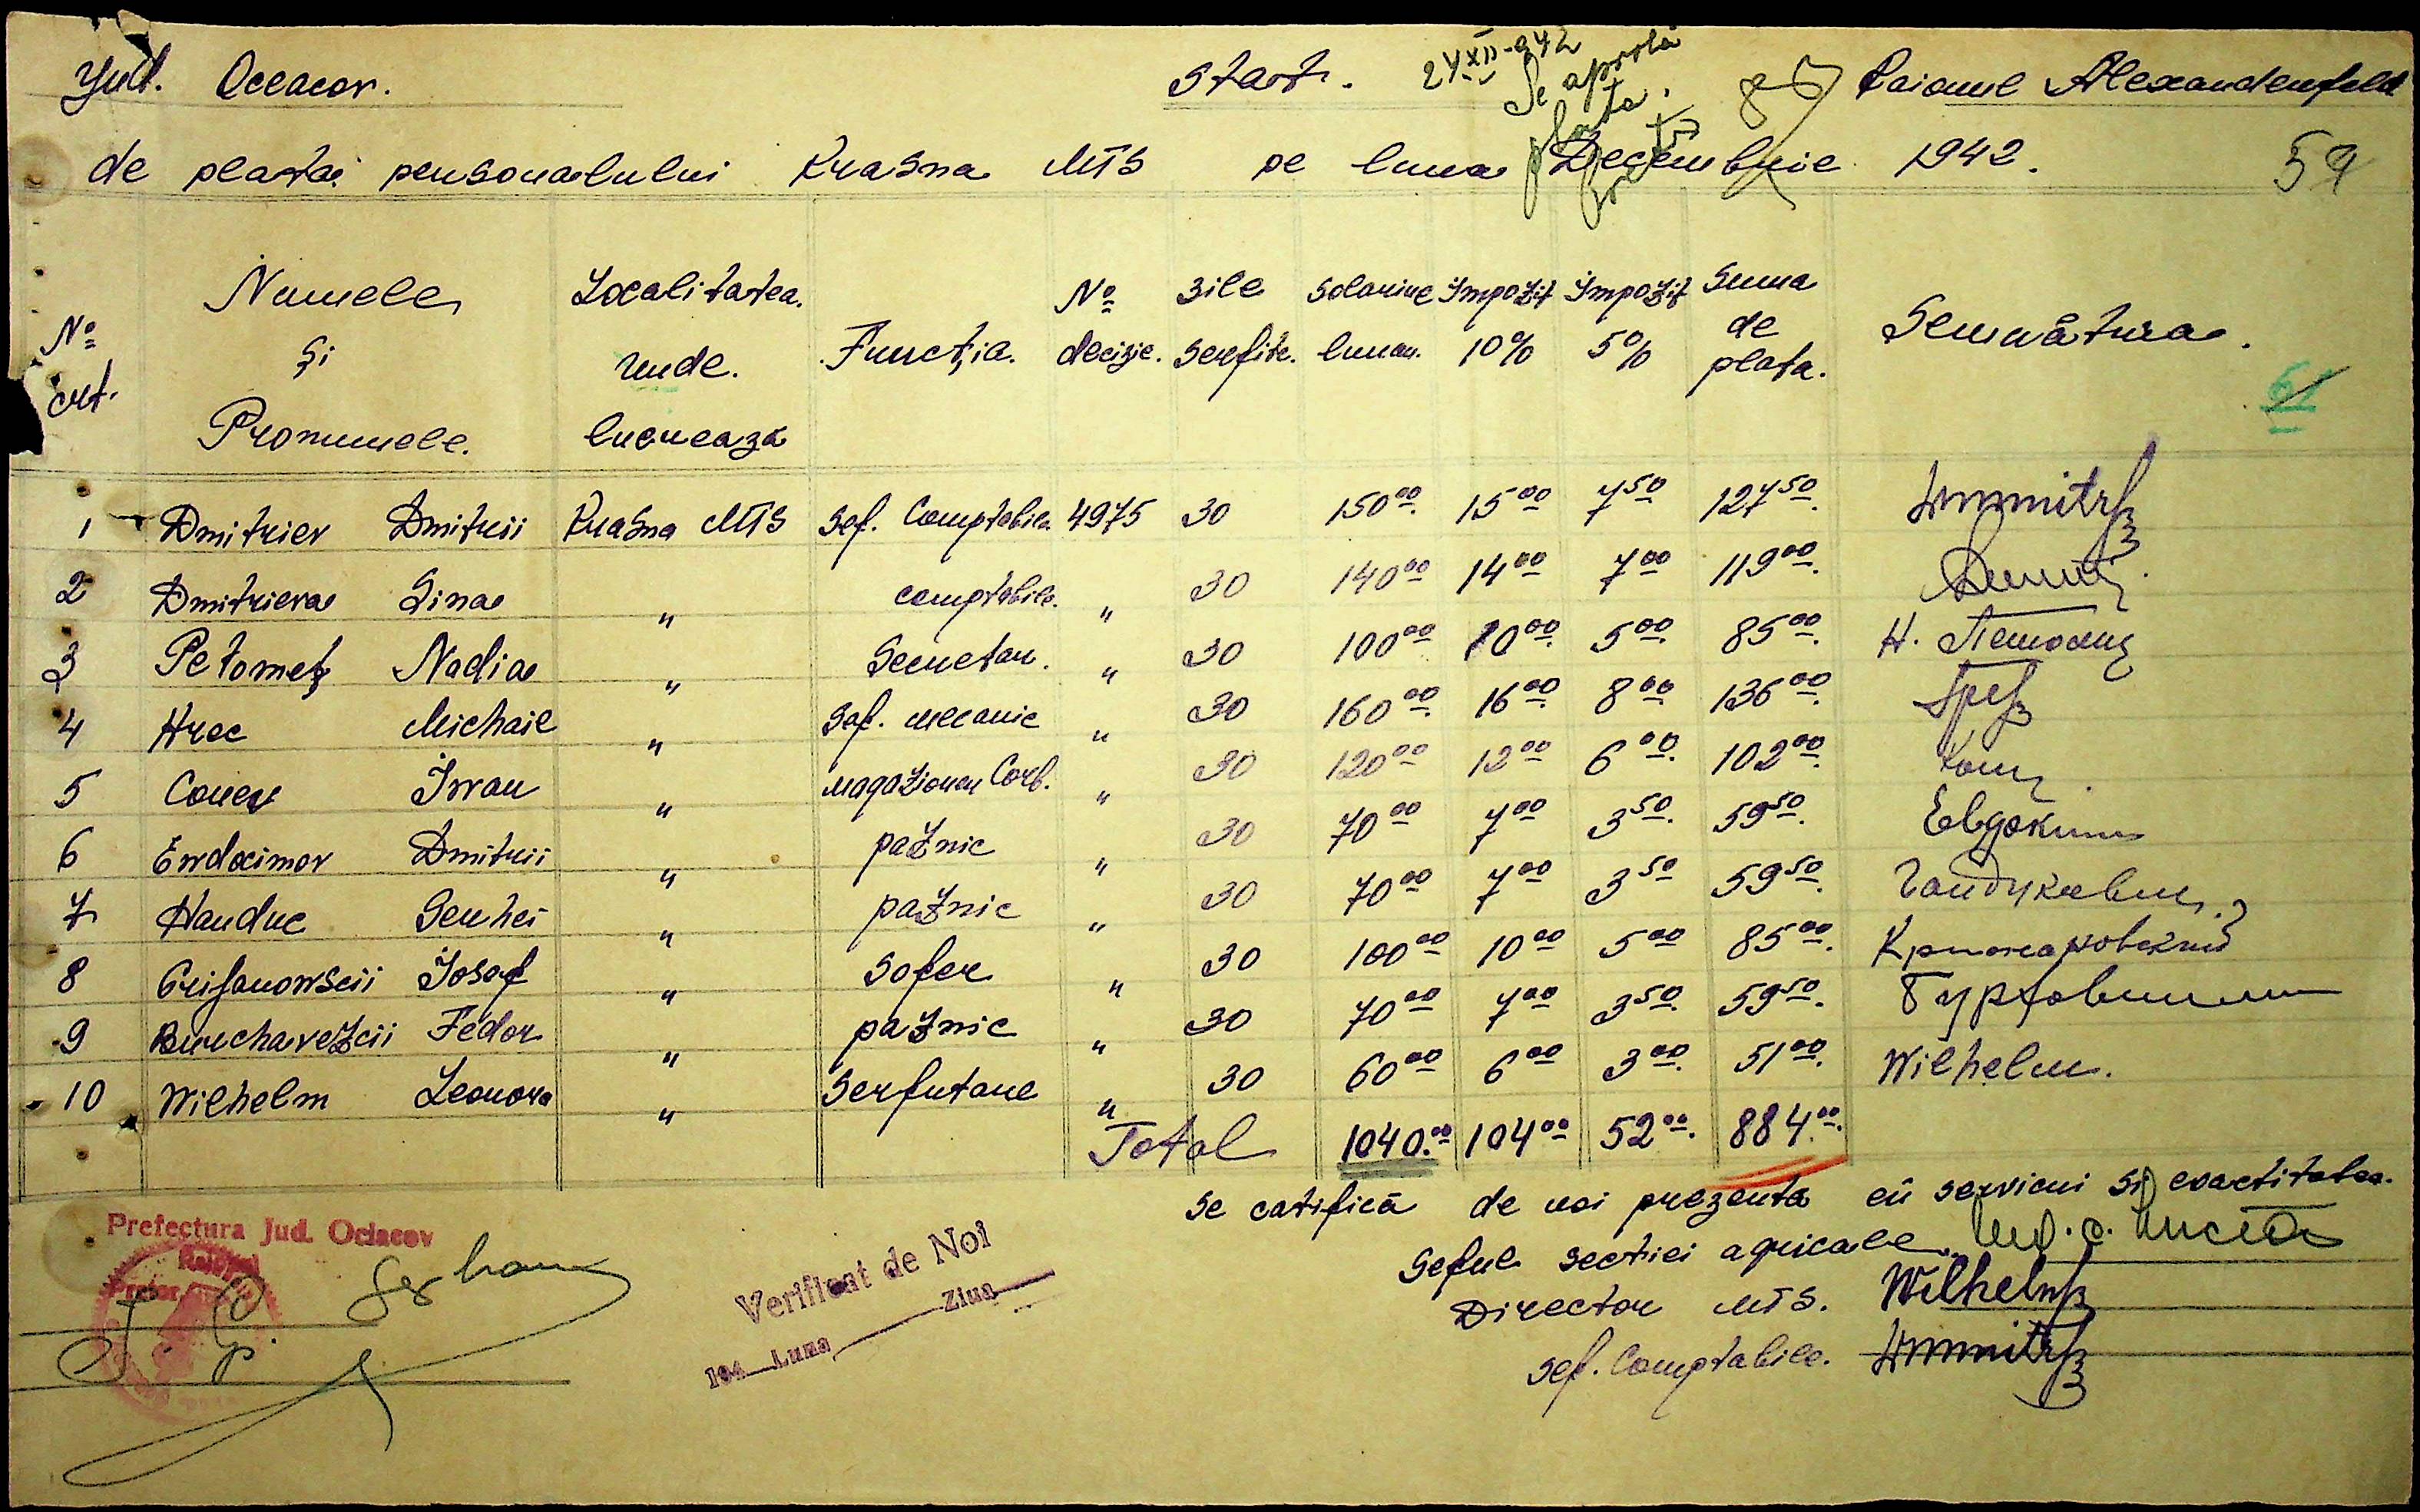 Jud. Oceacov. Stat. 24 XII-942 Raionul Alexandenfeld
Se aprobă
plata.
de plata personalului Krasna MTS pe luna Decembrie 1942. 59
61
No crt. Numele și Pronumele. Localitatea. unde. lucrează Funcția. No decizie. zile serfite. Solariul lunar. Impozit 10% Impozit 5% Suma de plata. Semnătura.
1 Dmitriev Dmitrii Krasna MTS Sef. Comptabil. 4975 30 150 00 15 00 7 50 127 50
2 Dmitrieva Lina " comptabil. " 30 140 00 14 00 7 00 119 00
3 Petometz Nadia " Secretar. " 30 100 00 10 00 5 00 85 00 Н.
4 Hroc Michail " Sef. mecanic " 30 160 00 16 00 8 00 136 00
5 Conev Ivvan " magazioner Carb. " 30 120 00 12 00 6 00 102 00
6 Evdocimov Dmitrii " paznic " 30 70 00 7 00 3 50 59 50 Евдокимов
7 Handuc Serhei " paznic " 30 70 00 7 00 3 50 59 50
8 Crijanowscii Josof " Sofer " 30 100 00 10 00 5 00 85 00
9 Burchavezcii Fedor " paznic " 30 70 00 7 00 3 50 59 50
10 Wilhelm Leonora " Serfutare " 30 60 00 6 00 3 00 51 00 Wilhelm.
Total 1040. 00 104 00 52 00 884. 00
Se catifică de noi prezenta cú serviciu si exactitatea.
Seful sectiei agricale.
Director MTS. Wilhelm
Sef. Comptabil.
Prefectura Jud. Ociacov
Raionul
Pretor
Verificat de Noi
194 Luna Ziua